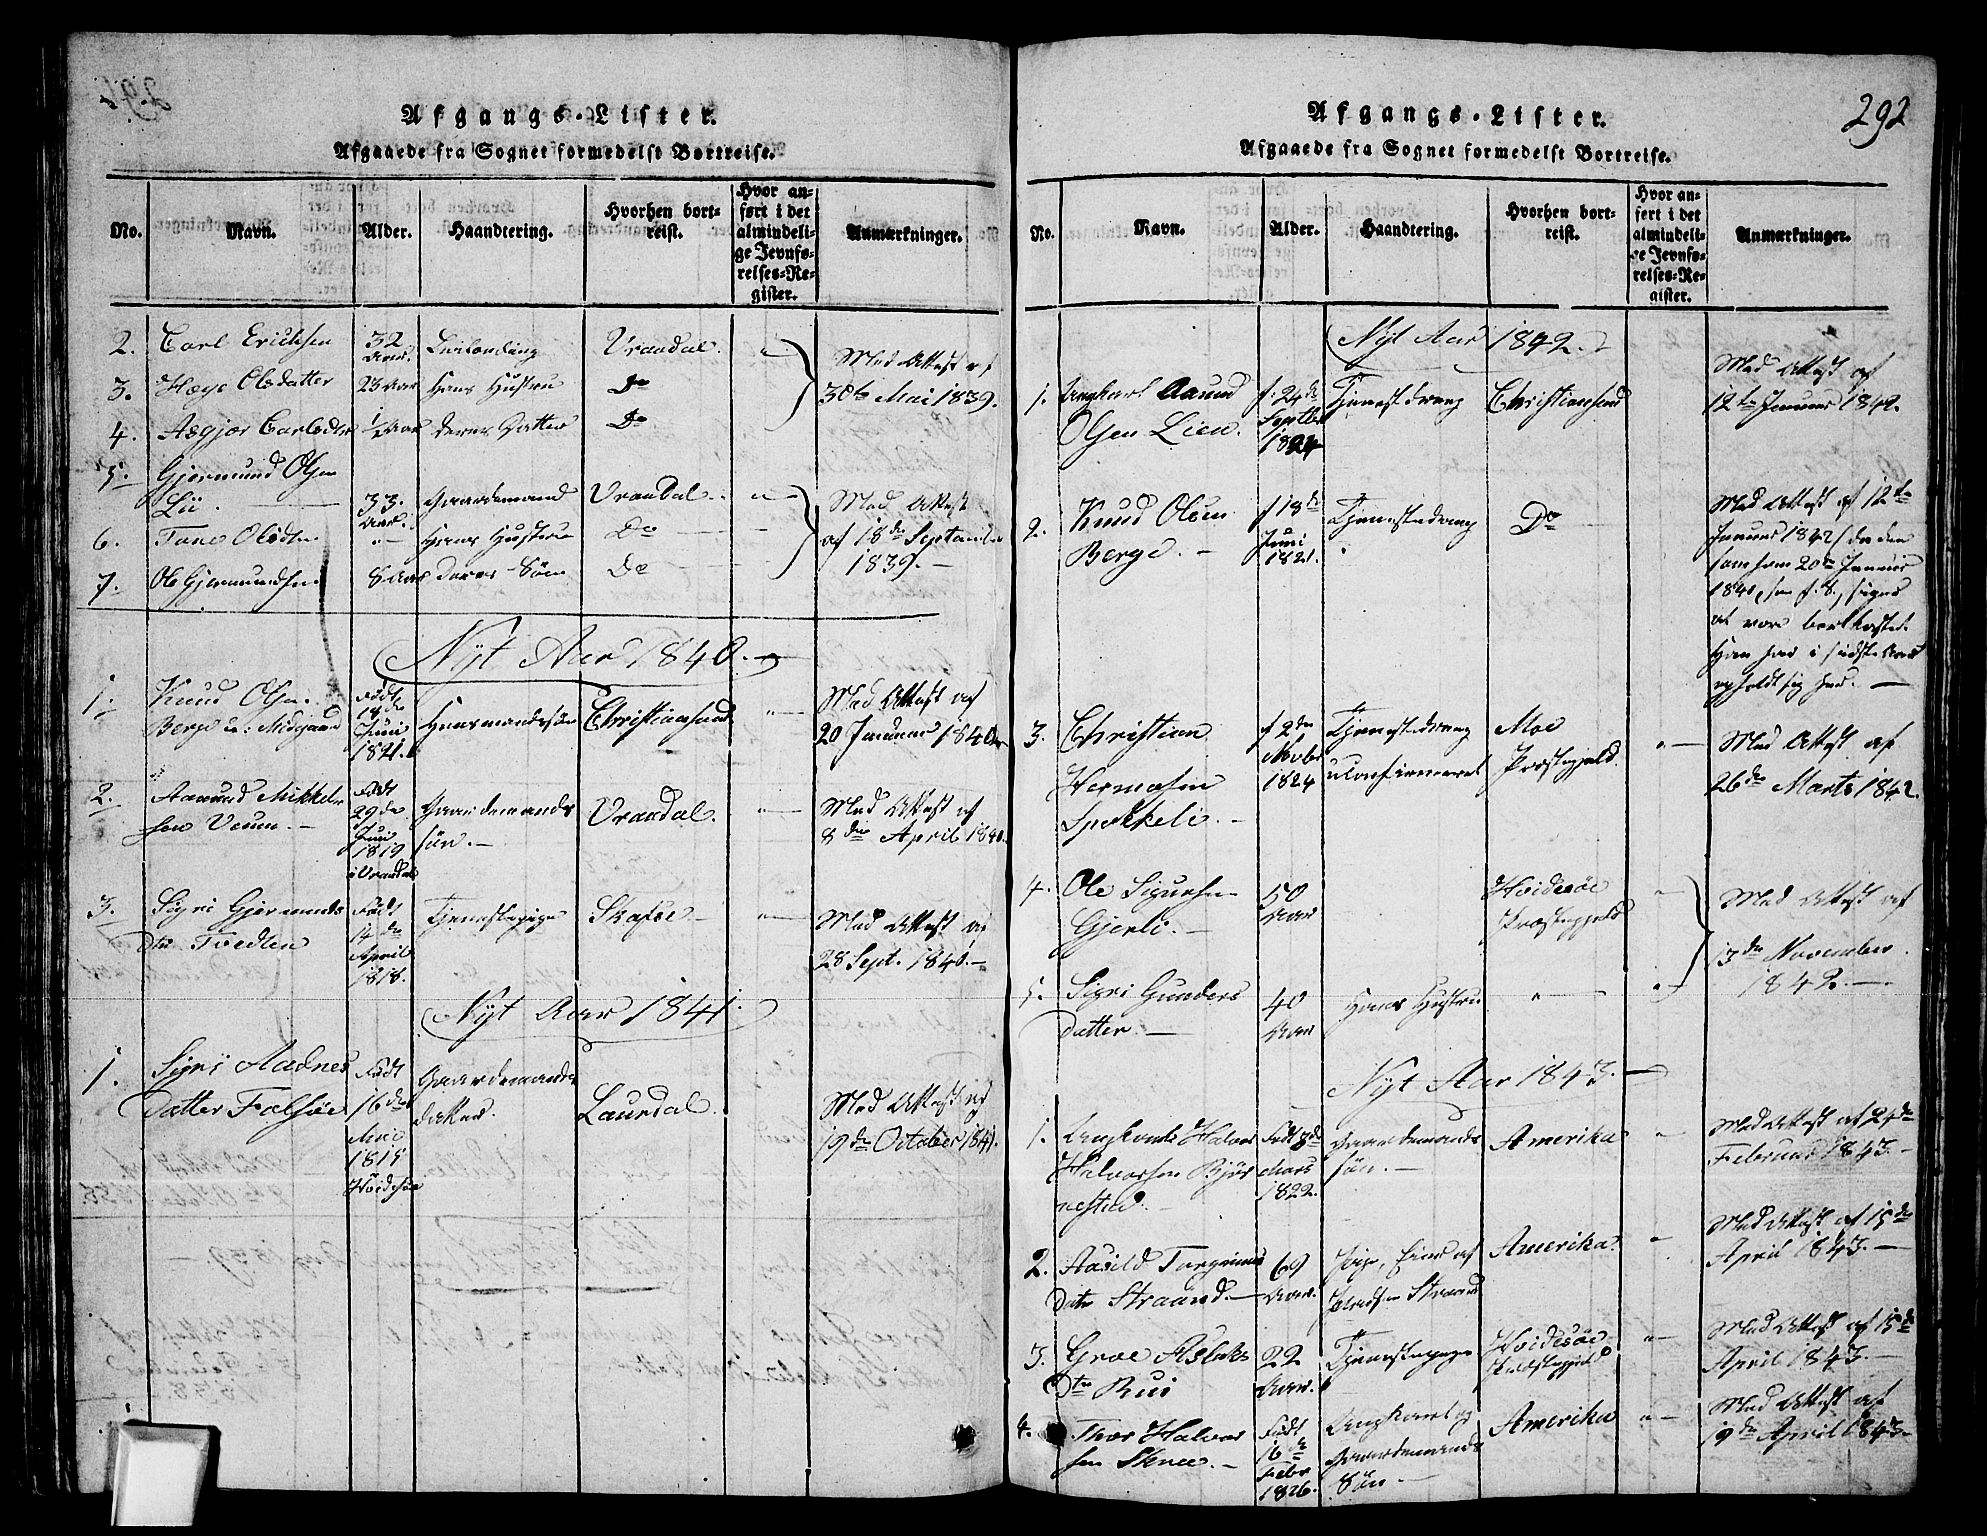 Afgangs-Lister.
Afgaaede fra Sognet formedelst Bortreise.
No.
Navn.
Alder.
Haandtering.
Hvorhen bortreist.
Hvor anført i det almindelige Jevnførelses-Register.
Anmærkninger.
2. Carl Erichsen 32 Aar. Vraadal.
3. Hæge Olsdatter 23 Aar Hans Hustru Do
Med Attest af 30te Mai 1839.
4. Asgjær Carlsdtr Aar deres Datter Do
5. Gjermund Olsen Lii. 33. Aar. Gaardemand Vraadal.
6. Tone Olsdtr. Hans Hustru Do
Med Attest af 18de September 1839.
7. Ole Gjermundsen 8 Aar deres Søn Do
Nyt Aar 1840.
1. Knud Olsen Berge Født 18de Juni 1821. Christiansand
Med Attest af 20 Januar 1840
2. Aamund Mikkelsen Veum. Født 29de Juni 1819 i Vraadal Gaardemands søn. Vraadal.
Med Attest af 8de April 1840.
3. Sigri Gjermunds dtr Tvedten Født 14de April 1818. Tjenestepige Skafse
Med Attest af 28 Sept. 1840.
Nyt Aar 1841.
1. Sigri Aadnes Datter Født 16de Mai 1815 Hvidesøe Gaardemands datter. Laurdal.
Med Attest af 19de October 1841.
292
Afgangs-Lister.
Afgaaede fra Sognet formedelst Bortreise.
No.
Navn.
Alder.
Haandtering.
Hvorhen bortreist.
Hvor anført i det almindelige Jevnførelses-Register.
Anmærkninger.
Nyt Aar 1842.
1. Ungkarl Aamund Olsen Lien. f. 24de Septbr 1824 Tjenestedreng Christiansand
Med Attest af 12te Januar 1842.
2. Knud Olsen Berge. f 18de Juni 1821. Tjenestedreng Do
Med Attest af 12te
Januar 1842
20de Januar
1840,
at være bortkastet.
Han har i sidste Aar
opholdt sig her.
3. Christian Hermansen f 2den Novbr 1824 Tjenestedreng uconfirmeret Moe Præstegjeld.
Med Attest af 26de Marts 1842.
4. Ole Sigursen Gjerli. 50 Aar Hvidesøe Præstegjeld
5. Sigri Gunders Datter. 40 Aar Hans Hustru
Med Attest af 13de November 1842.
Nyt Aar 1843.
1. Ungkarl Halvor Halvorsen Født 8de Mars 1822. Gaardemands søn. Amerika
Med Attest af 24de Februar 1843.
2. Aasild Torgrims Datr Straand. 69 Aar. Amerika.
Med Attest af 15de April 1843.
3. Groe Aslaks Dtr Rui 22 Aar. Tjenestepige Hvidesøe Præstegjeld
Med Attest af 15de April 1843.
4. Thor Halvorsen Født 16de Febr 1826. Ungkarl og Gaardemands Søn Amerika
Med Attest af 19de April 1843.